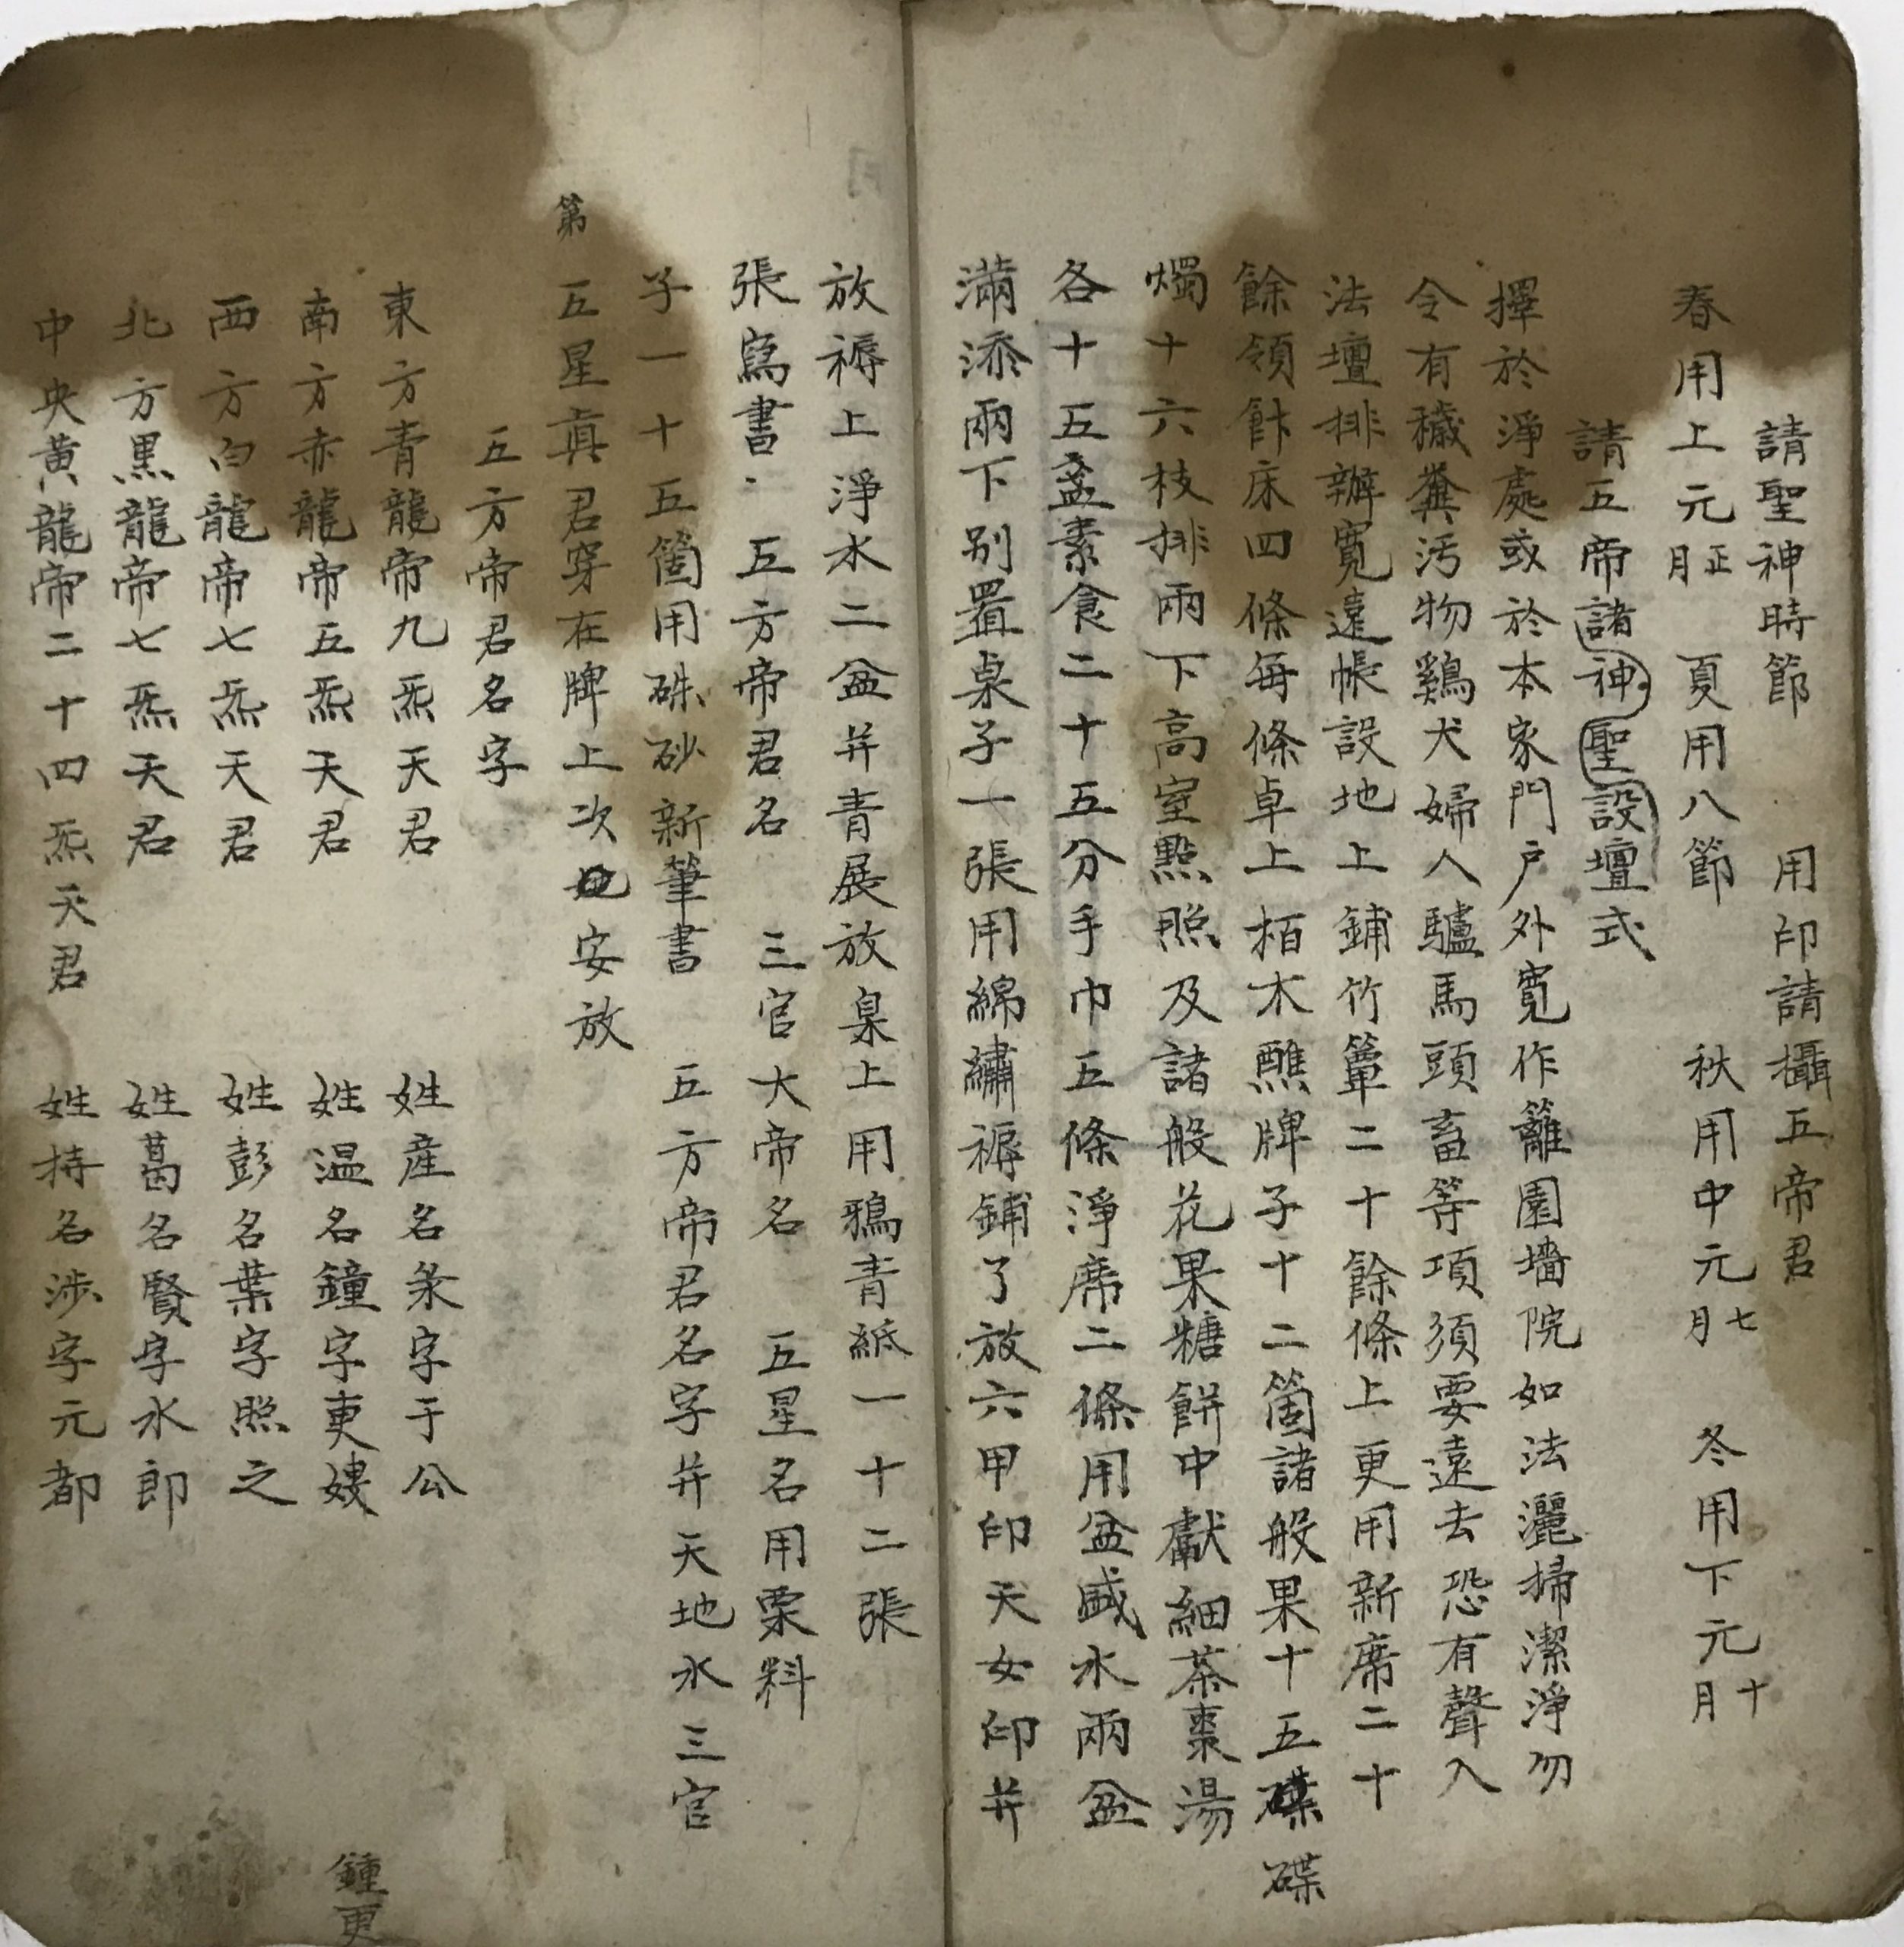 請聖神時節　用印請攝五帝君
春用上元正月　夏用八節　秋用中元七月　冬用下元十月
請五帝諸神聖設壇式
擇於淨處或於本家門户外寬作籬園墻院如法灑掃潔淨勿
令有穢糞汚物鷄犬婦人驢馬頭畜等項須要遠去恐有聲入
法壇排辦寬遠帳設地上鋪竹簟二十餘條上更用新席二十
餘領飰床四條每條卓上栢木醮牌子十二箇諸般果十五碟
碟
燭十六枝排兩下高室㸃照及諸般花果糖餅中獻細茶棗湯
各十五盞素食二十五分手巾五條淨席二條用盆盛水兩盆
滿添兩下别置桌子一張用綿繡褥鋪了放六甲印天女印并
放褥上淨水二盆并青展放桌上用鴉青紙一十二張
張寫書　五方帝君名　三官大帝名　五星名用栗料
子一十五箇用硃砂新筆書　五方帝君名字并天地水三官
第
五星真君穿在牌上次安放
五方帝君名字
東方青龍帝九炁天君　姓産名条字于公
南方赤龍帝五炁天君　姓温名鐘字更㜢
西方白龍帝七炁天君　姓彭名葉字照之
北方黒龍帝七炁天君　姓葛名賢字水郎
中央黄龍帝二十四炁天君　姓持名涉字元都
鍾更